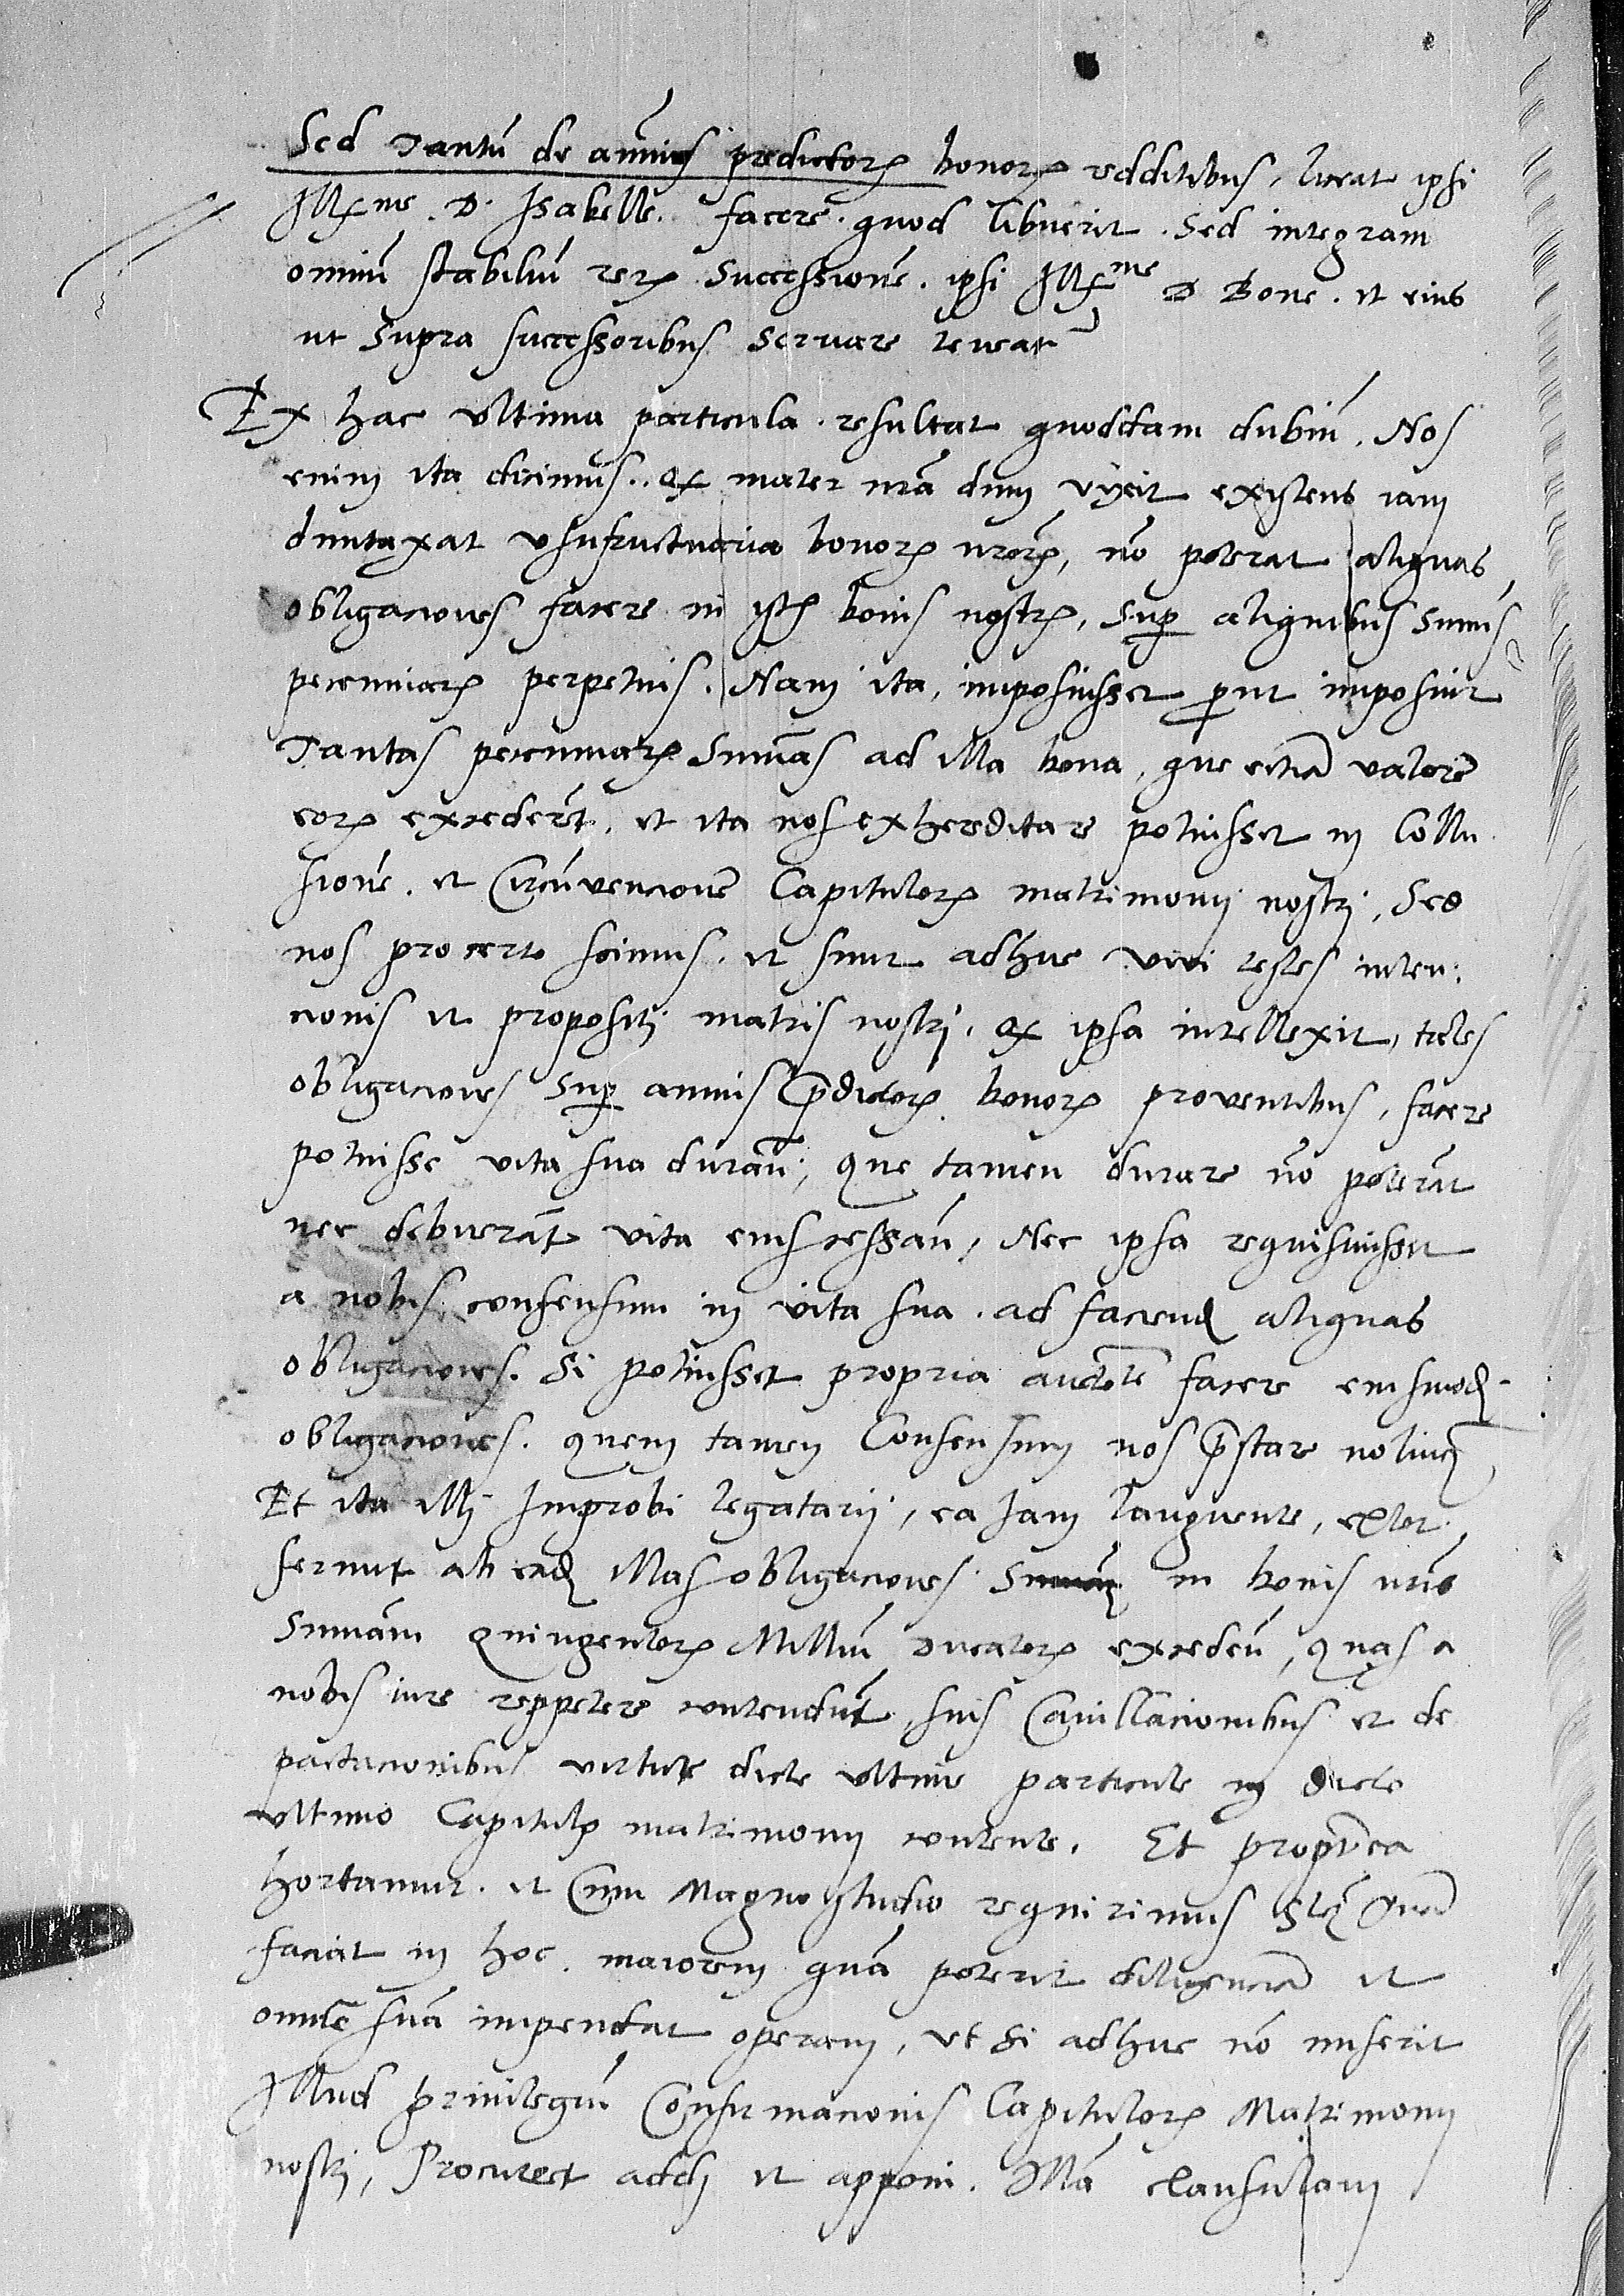 Sed Tantũ de annuis predictorꝫ bonorꝫ redditibus, liceat ipsi
Illͫᵉ. D. Isabelle. facere. quod libuerit. Sed integram
omniũ stabiliũ rerꝫ successionẽ. ipsi Illᵐᵉ D Bone. et eius
ut supra successoribus servare teneat
Ex hac ultima particula. resultat quoddam dubiũ. Nos
enim ita dicimus. ꝙ mater nrã dum vixit existens iam
duntaxat usufructuaria bonorꝫ nrõrꝫ, nõ poterat aliquas
obligaciones facere in istis bonis nostrꝫ, Sup aliquibus Sum̃is
pecuniarꝫ perpetuis. Nam ita, imposuisset prout imposuit
Tantas pecuniarꝫ Sum̃as ad illa bona, que etiã valorẽ
eorꝫ excederẽt, et ita nos exhereditare potuisset in Collu
sionẽ. et Circũvencionẽ Capitulorꝫ matrimonij nostrj, Sed
nos procerto scimus. et sunt adhuc vivi testes inten:
cionis et propositi matris nostrj. ꝙ ipsa intellexit, tales
obligaciones Sup annuis p̃dictorꝫ bonorꝫ proventibus, facere
potuisse vita sua durañ:, que tamen durare nõ poterãt
nec debuerãt vita eius cessañ, Nec ipsa requisivisset
a nobis consensum in vita sua. ad faciend aliquas
obligaciones. Si potuisset propria auctoꝛte facere eiusmod
obligaciones. quem tamen Consensum nos p̃stare noluim
Et ita illi Improbi legatarij, ea Iam languente, extor
serunt ab ead illas obligaciones in bonis nris
Sum̃am Quingentorꝫ Milliũ Ducatorꝫ excedeñ, quas a
nobis iure reppetere contendũt, suis Cavillacionibus et de
pactacionibus virtute dicte ultime particule in dicto
ultimo Capitulo matrimonij contente. Et propterea
hortamur. et Cum Magno studio requirimus
faciat in hoc. maiorem quã poterit diligenciã et
omnẽ suã impendat operam, ut si adhuc nõ miserit
Illud privilegiũ Confirmacionis Capitulorꝫ Matrimonij
nostri, Procuret addi et apponi. Illã clausulam